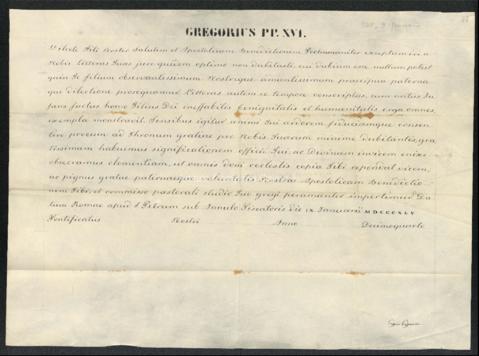 GREGORIUS PP. XVI.
Dilecte Fili Noster Salutem et Apostolicam Benedictionem Perhumaniter exceptum iri a
Nobis litteras Tuas jure quidem optimo non dubitasti, cui dubium esse nullum potest
quin Te filium observantissimum Nostrique amantissimum praecipua paterna
que dilectione prosequamur. Litteras autem eo tempore conscriptas, cum ortus In
fans factus homo Filius Dei ineffabilis benignitatis et humanitatis erga omnes
exempla monstravit. Sensibus igitur animi Tui
preces ad Thronum gratiae pro Nobis Tuarum minime dubitantes, gra
tissimam habuimus significationem officii Tui, ac Divinam invicem enixe
obsecramus clementiam, ut omni bonorum coelestis copia Tibi rependat vicem,
ac pignus gratae paternaeque voluntatis Nostrae Apostolicam Benedictio
nem Tibi, et commisso pastorali studio Tuo gregi peramanter impertimur. Da
tum Romae apud S. Petrum sub Annulo Piscatoris die IX Januarii MDCCCXLV
Pontificatus Nostri Anno Decimoquarto